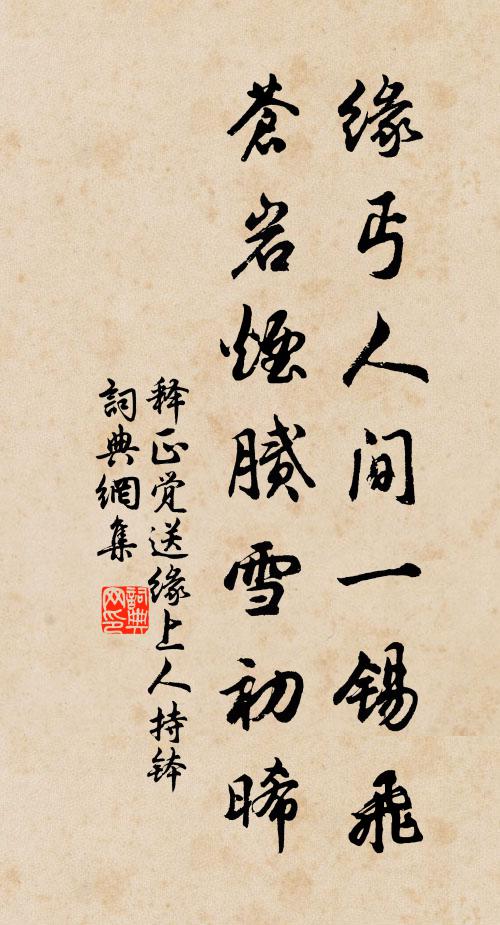 缘丐人间一锡飛
蒼岩煙膩雪初晞
释正觉送缘上人持钵
詞典網集
詞典网印